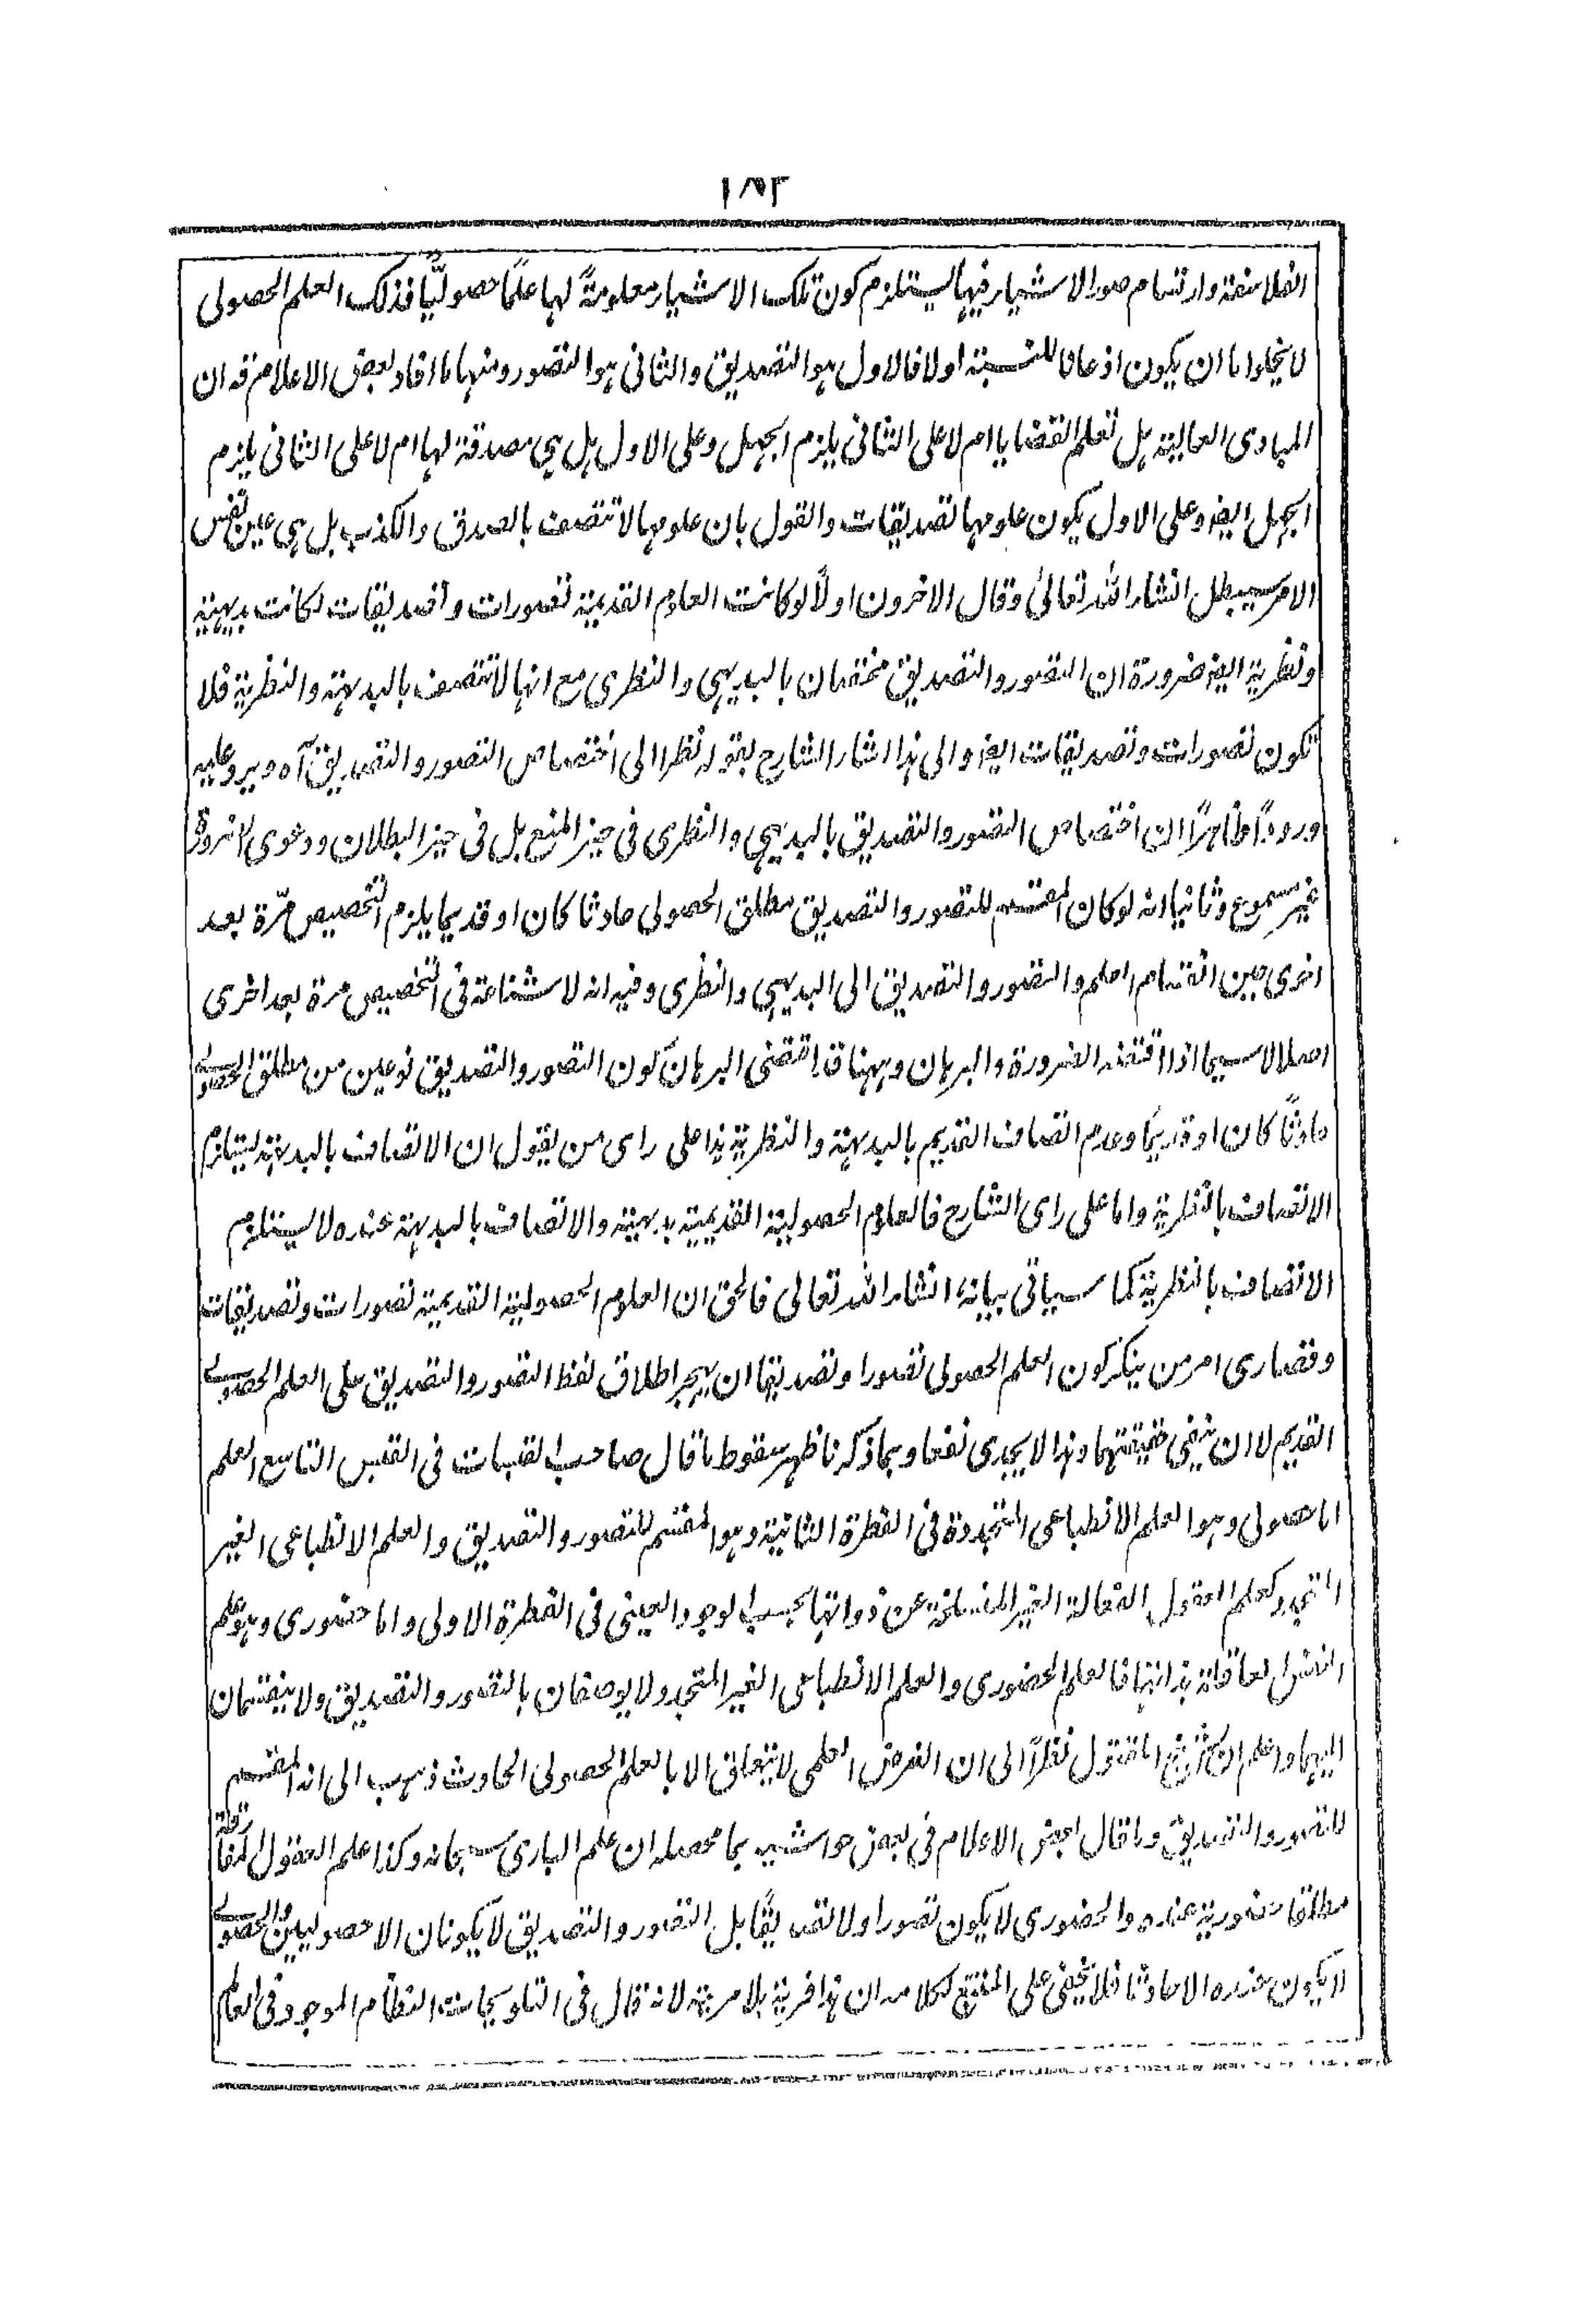 ١٨٣
الفلاسفة وارتسام صور الاشياء فيها يستلزم كون تلك الاشياء معلومة لها علمًا حصوليًّا فذلك العلم الحصولى
لا يخلو اما ان يكون اذعانا للنسبة اولا فالاول هو التصديق والثانى هو التصور ومنها ما افاد بعض الاعلام قه ان
المبادى العالية هل تعلم القضايا ام لا على الثانى يلزم الجهل وعلى الاول هل هى مصدقة لها ام لا على الثانى يلزم
الجهل ايضا وعلى الاول يكون علومها تصديقات والقول بان علومها لا تتصف بالصدق والكذب بل هى عين نفس
الامر سيبطل انشاء الله تعالىٰ وقال الاخرون اولاً لو كانت العلوم القديمة تصورات وتصديقات لكانت بديهية
ونظرية ايضا ضرورة ان التصور والتصديق مختصان بالبديهى والنظرى مع انها لا تتصف بالبديهة والنظرية فلا
تكون تصورات وتصديقات ايضا والى هذا اشار الشارح بقوله نظرا الى اختصاص التصور والتصديق آه ويرد عليه
ورودًا ظاهرًا ان اختصاص التصور والتصديق بالبديهى والنظرى فى حيز المنع بل فى حيز البطلان ودعوى الضرورة
غير مسموع وثانيا انه لو كان المقسم للتصور والتصديق مطلق الحصولى حادثا كان او قديما يلزم التخصيص مرّة بعد
اخرى حين انقسام العلم والتصور والتصديق الى البديهى والنظرى وفيه انه لا شناعة فى التخصيص مرة بعد اخرى
اصلا لا سيما اذا اقتضته الضرورة والبرهان وههنا قد اقتضى البرهان كون التصور والتصديق نوعين من مطلق الحصولى
حادثًا كان او قديمًا وعدم اتصاف القديم بالبديهة والنظرية هذا على راى من يقول ان الاتصاف بالبديهة يستلزم
الاتصاف بالنظرية واما على راى الشارح فالعلوم الحصولية القديمية بديهية والاتصاف بالبديهة عنده لا يستلزم
الاتصاف بالنظرية كما سياتى بيانه انشاء الله تعالى فالحق ان العلوم الحصولية القديمية تصورات وتصديقات
وقصارى امر من ينكر كون العلم الحصولى تصورا وتصديقا ان يهجر اطلاق لفظ التصور والتصديق على العلم الحصولى
القديم لا ان ينفى حقيقتهما وهذا لا يجدى نفعا وبما ذكرنا ظهر سقوط ما قال صاحب القبسات فى القبس التاسع العلم
اما حصولى وهو العلم الانطباعى المتجددة فى الفطرة الثانية وهو المقسم للتصور والتصديق والعلم الانطباعى الغير
المتجدد كعلم العقول الفعالة الغير المنسلخة عن ذواتها بحسب الوجود العينى فى الفطرة الاولى واما حضورى وهو علم
النفس العاقلة بذاتها فالعلم الحضورى والعلم الانطباعى الغير المتجدد لا يوصفان بالتصور والتصديق ولا ينقسمان
اليهما واعلم ان الشيخ المقتول نظرًا الى ان الغرض العلمى لا يتعلق الا بالعلم الحصولى الحادث ذهب الى انه المقسم
للتصور والتصديق وما قال بعض الاعلام فى بعض حواشيه بما محصله ان علم البارى سبحانه وكذا علم العقول المفارقة
مطلقا حضورية عنده والحضورى لا يكون تصورا ولا تصديقًا بل التصور والتصديق لا يكونان الا حصوليين والحصولى
لا يكون عنده الا حادثا فلا يخفى على المتتبع لكلامه ان هذا فرية بلا مرية لانه قال فى التلويحات النظام الموجود فى العالم